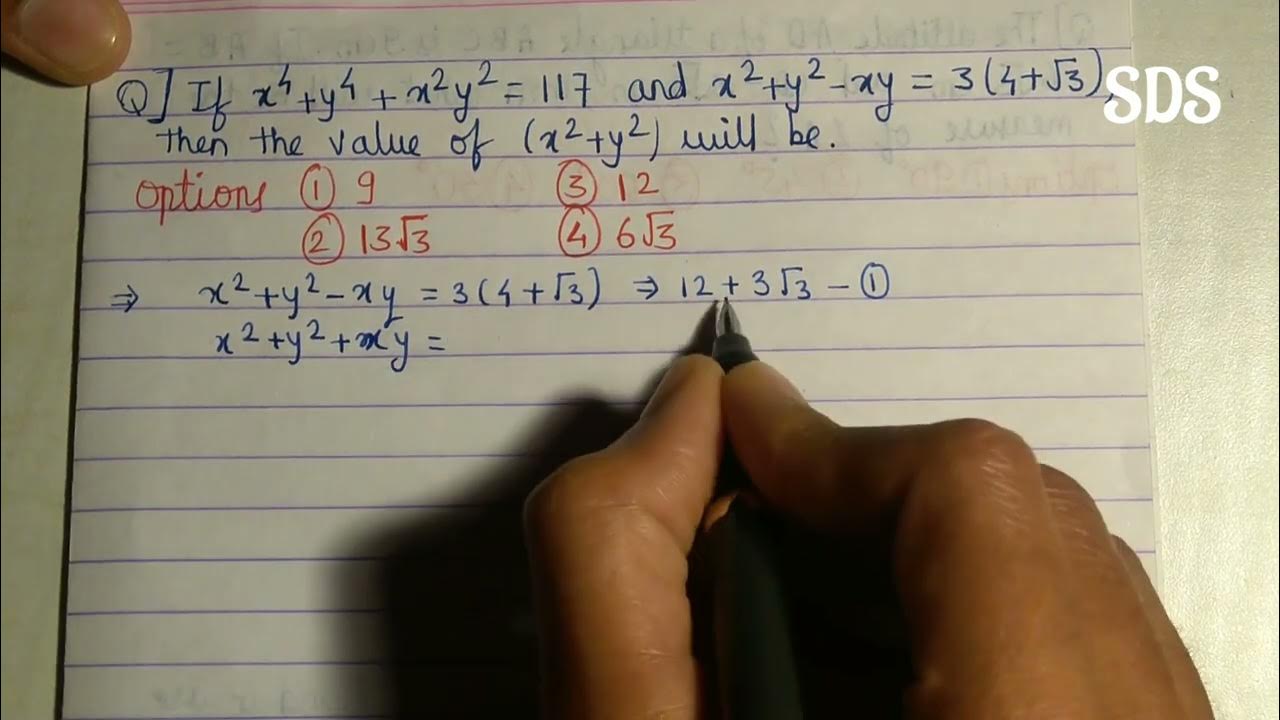 Q] If x⁴+y⁴+x²y²=117 and x²+y²-xy = 3(4+√3),
SDS
then the value of (x²+y²) will be.
options ① 9 ③ 12
② 13√3 ④ 6√3
⇒ x²+y²-xy = 3(4+√3) ⇒ 12+3√3 - ①
x²+y²+xy =